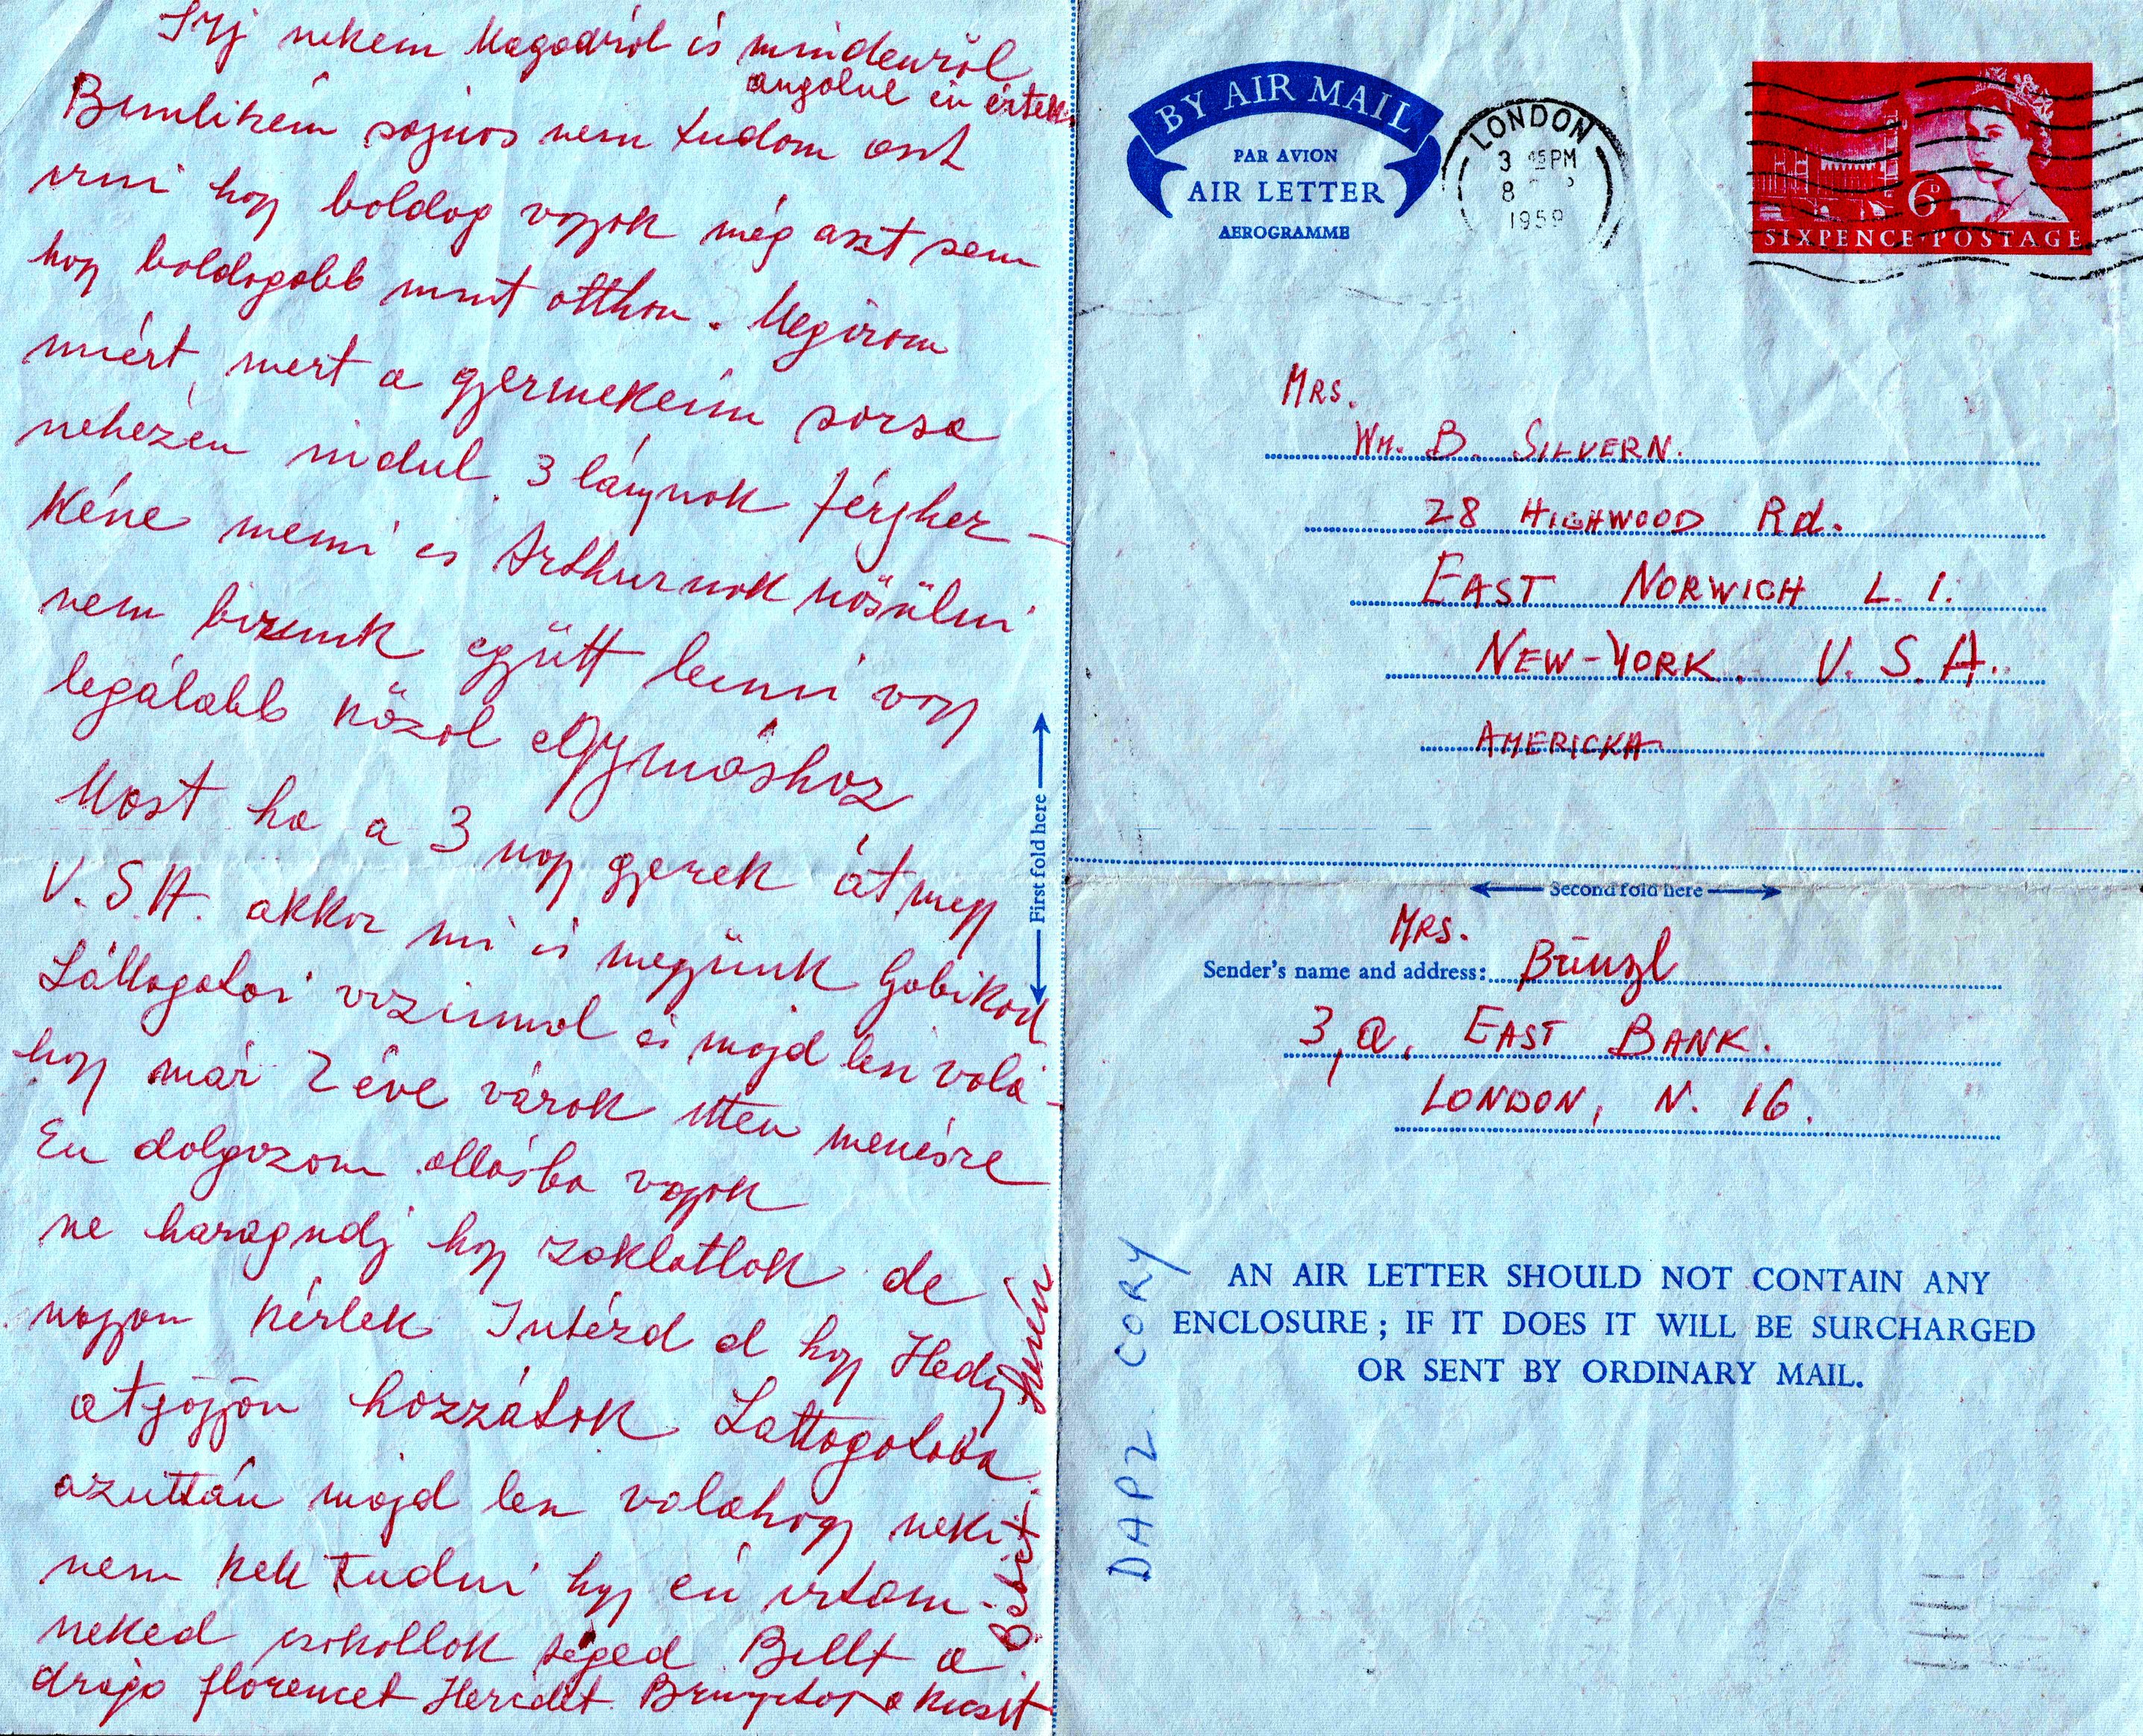 Irj nekem Magadról és mindenröl
angolul én értek.
Bimlikém sajnos nem tudom aszt
irni hogy boldog vagyok még aszt sem
hogy boldogabb mint otthon. Megirom
miért, mert a gyermekeim sorsa
nehezen indul. 3 lánynok férjhez-
kéne menni es Arthurnok nösülni
nem birunk együtt lenni vagy
legálabb közol eGymáshoz
Most ha a 3 nagy gyerek átmegy
V.S.A. akkor mi is megyünk
Láttogatosi vizinmol és majd lesz vola-
hogy már 2 éve várok itten menésre
En dolgozom állásba vagyok
ne haragudj hogy zaklatlok de
nagyon kérlek Intézd el hogy Hedy
atjöjjön hozzátok Lattogotoba
azuttán majd lesz valahogy neki
nem kell tudni hogy én irtam
neked csokollok téged Billt a
drága florencet
BY AIR MAIL
PAR AVION
AIR LETTER
AEROGRAMME
LONDON
3 45PM
8
1959
6D
SIXPENCE POSTAGE
MRS.
WM. B. SILVERN.
28 HIGHWOOD Rd.
EAST NORWICH L. I.
NEW-YORK. V. S. A.
AMERICKA
First fold here
Second fold here
MRS.
Sender's name and address: Bünzl
3,a, EAST BANK.
LONDON, N. 16.
DAPZ CORY
AN AIR LETTER SHOULD NOT CONTAIN ANY
ENCLOSURE ; IF IT DOES IT WILL BE SURCHARGED
OR SENT BY ORDINARY MAIL.